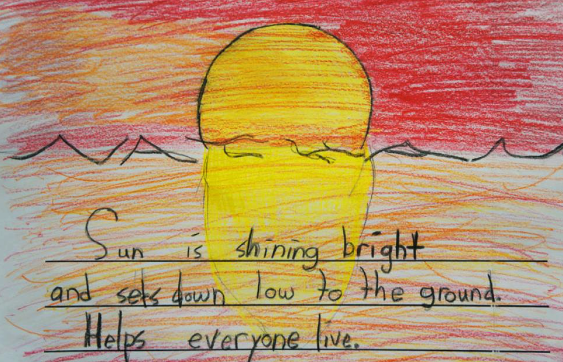 Sun is shining bright
and sets down low to the ground.
Helps everyone live.